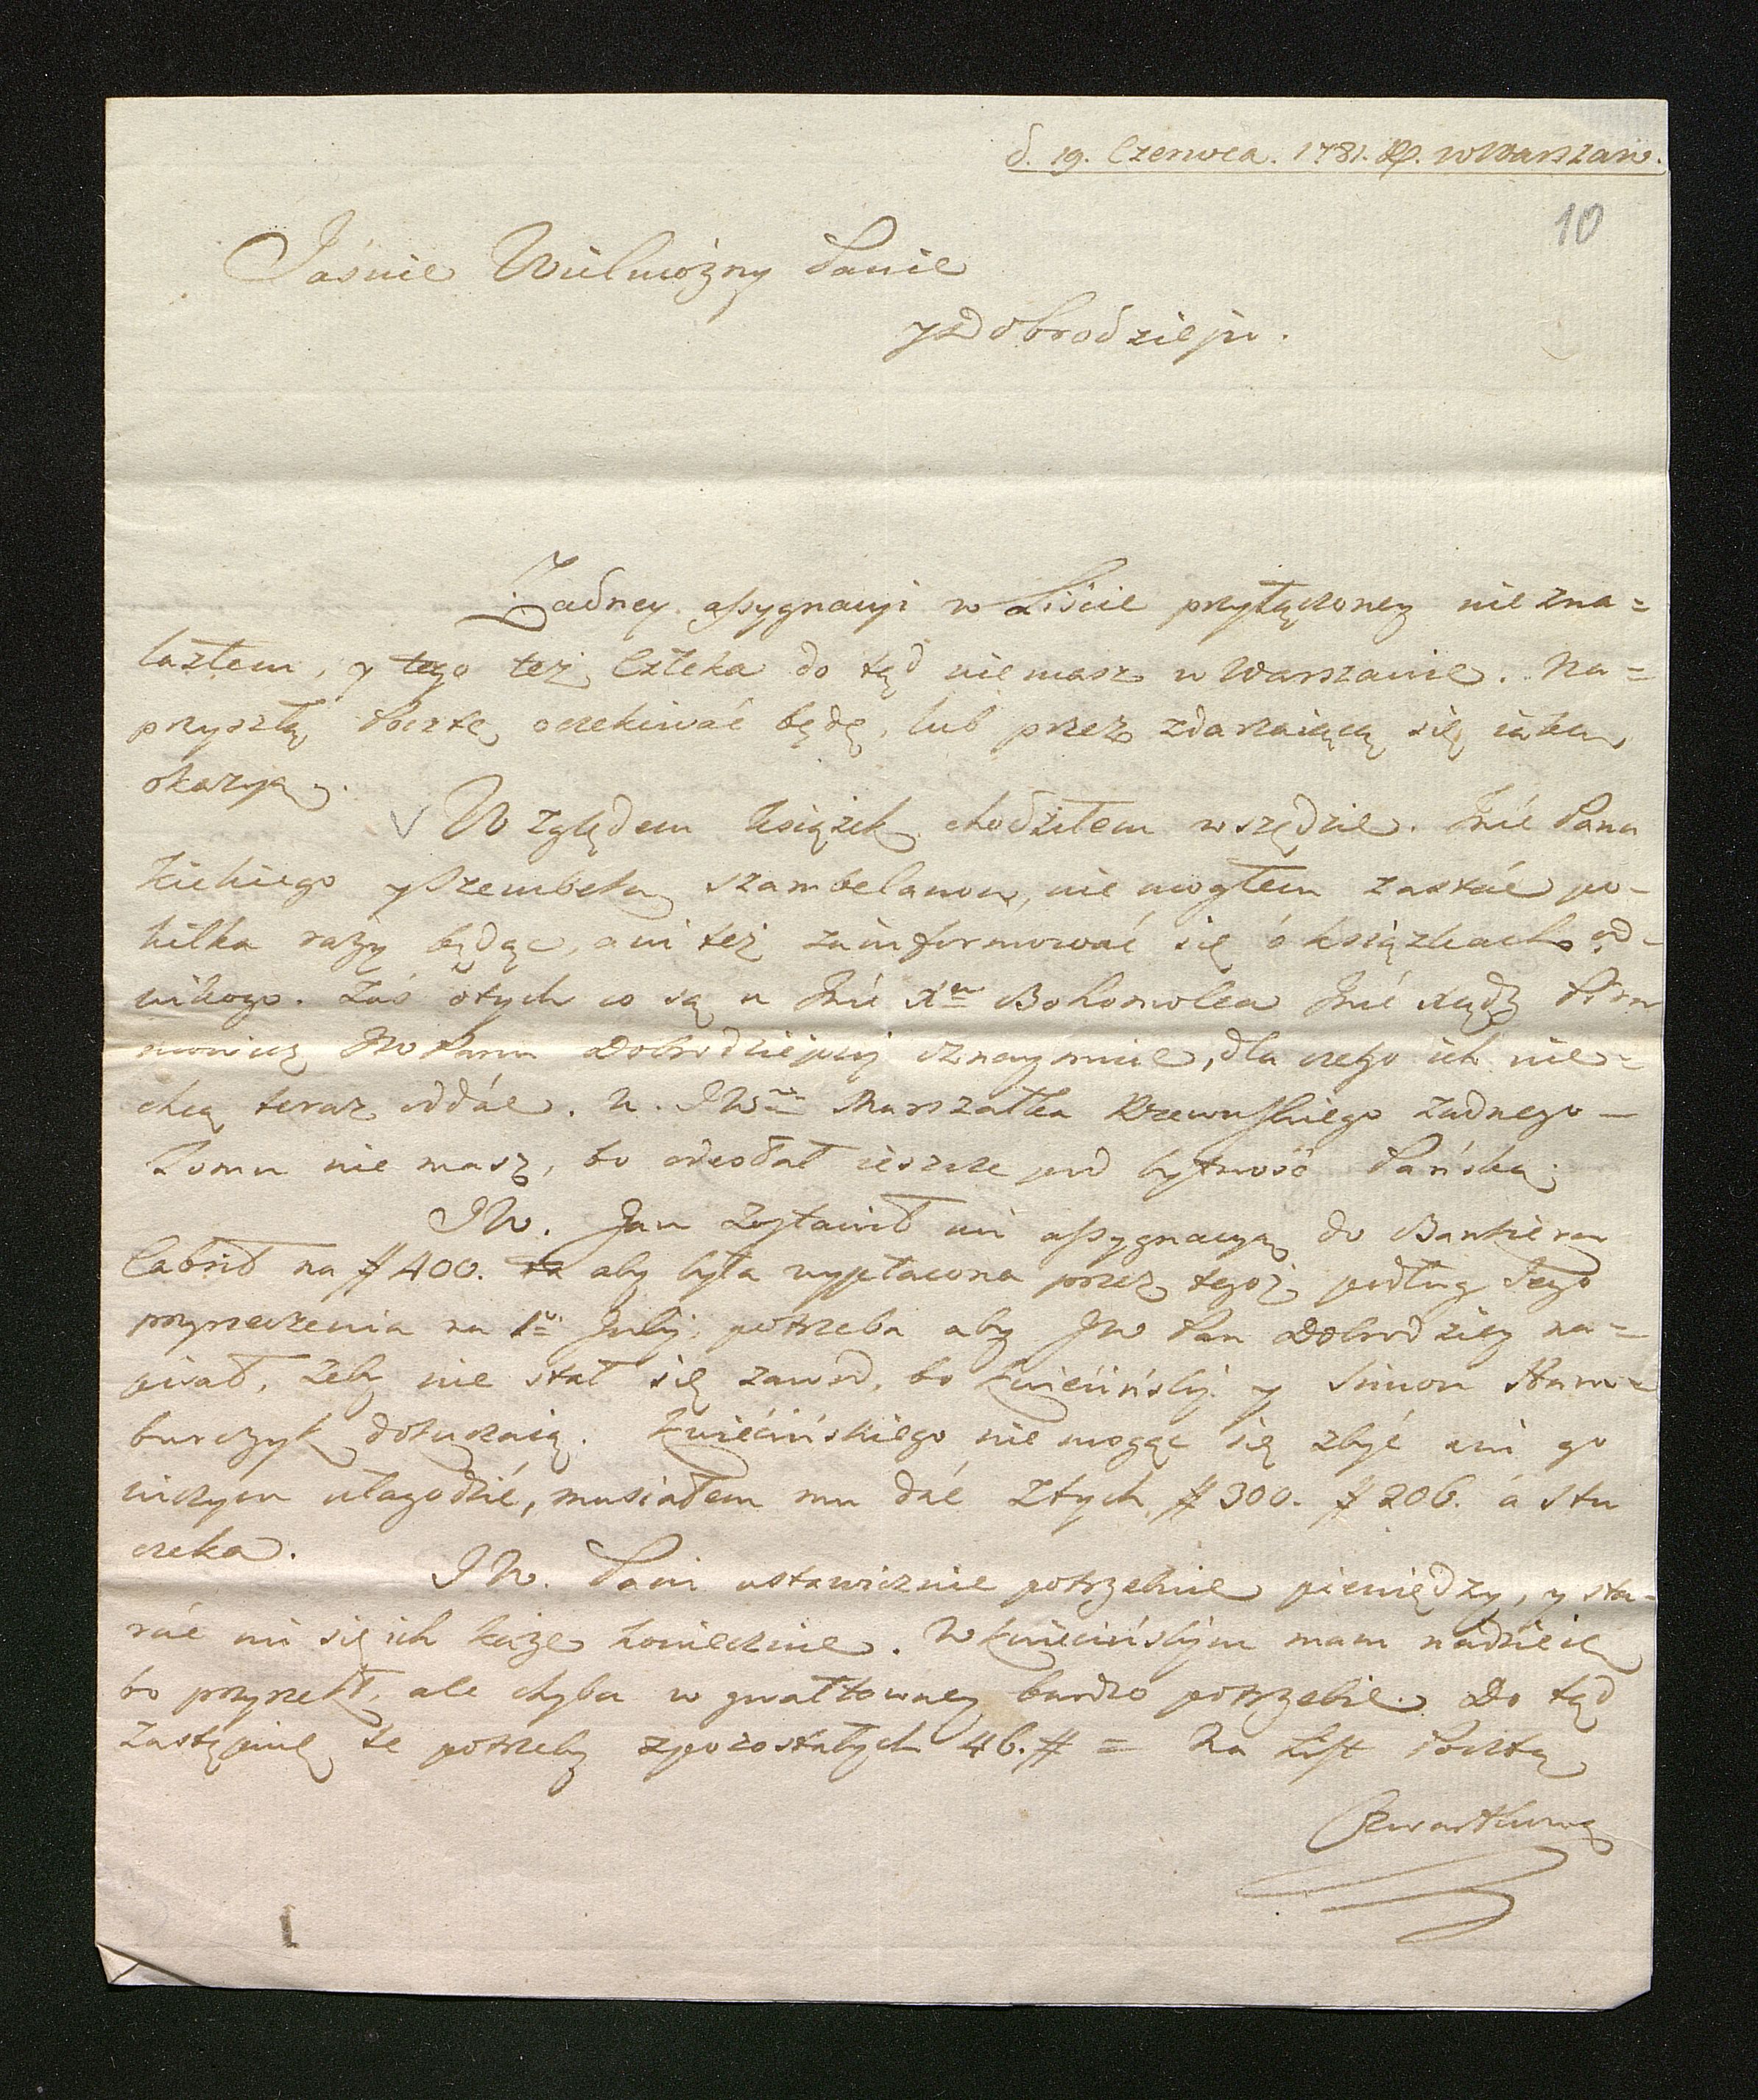 d. 19. Czerwca. 1781. R. w Warszaw.
10
Jaśnie Wielmożny Panie
y Dobrodzieju.
Żadney assygnacyi w Liście przyłączoney nie zna=
lazłem, y tego też Człeka do tąd nie masz w Warszawie. Na=
przyszłą Pocztę oczekiwać będę, lub przez zdarzaiącą się iaką
okazyą.
Względem książek chodziłem wszędzie. Jmć Pana
Kickiego y Szembeka szambelanow, nie mogłem zastać po-
kilka razy będąc, ani też zainformować się ó książkach od-
nikogo. Zaś ótych co są u Jmć Xa Bohomolca Jmć Xądz Pira
mowicz JW Panu Dobrodziejowi oznaymuie, dla czego ich nie-
chcą teraz oddać. U. JWo Marszałka Rzewuskiego żadnego
Tomu nie masz, bo odesłał ieszcze pod bytność Pańską.
JW. Pan Zostawił mi assygnacyą do Bankiera
Cabrid na # 400. ta aby była wypłacona przez tegoż podług Jego
przyrzeczenia na 1w July, potrzeba aby JW Pan Dobrodziey na=
pisał, żeby nie stał się zawod, bo Kwiecińsky y Simon Ham=
burczyk dokuczaią. Kwiecińskiego nie mogąc się zbyć ani go
niczym ułagodzić, musiałem mu dać Ztych # 300. # 206. á stu
czeka.
JW. Pani ustawicznie potrzebuie pieniędzy, y sta-
rać mi się ich każe koniecznie. W Kwiecińskym mam nadzieię
bo przyrzekł, ale chyba w gwałtowney bardzo potrzebie. Do tąd
zastępuię te potrzeby zpozostałych 46. # = Na List Pocztą
Czwartkową